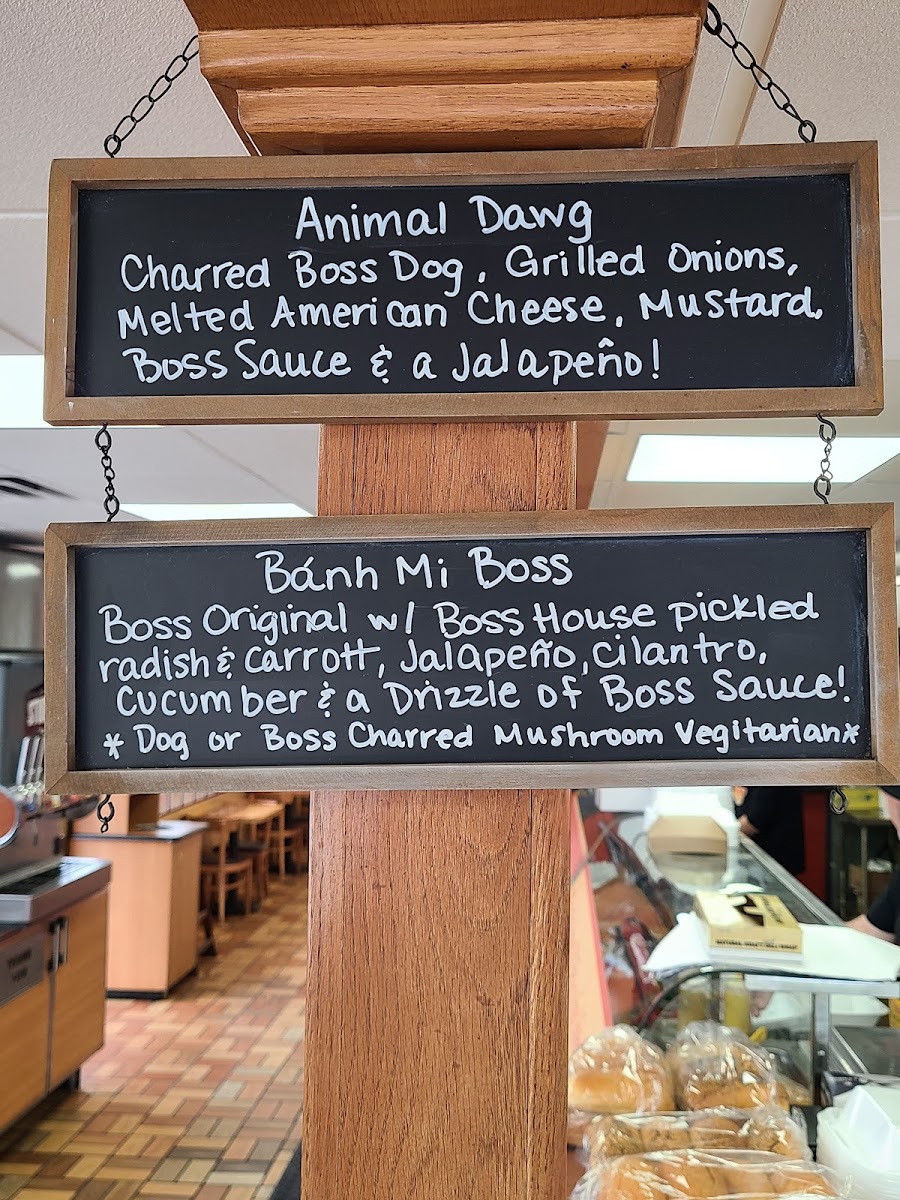 Animal Dawg
Charred Boss Dog, Grilled Onions,
Melted American Cheese, Mustard,
Boss Sauce & a Jalapeño!
Bánh Mi Boss
Boss Original w/ Boss House pickled
radish & carrott, Jalapeño, cilantro,
cucumber & a Drizzle of Boss Sauce!
* Dog or Boss Charred Mushroom Vegitarian*